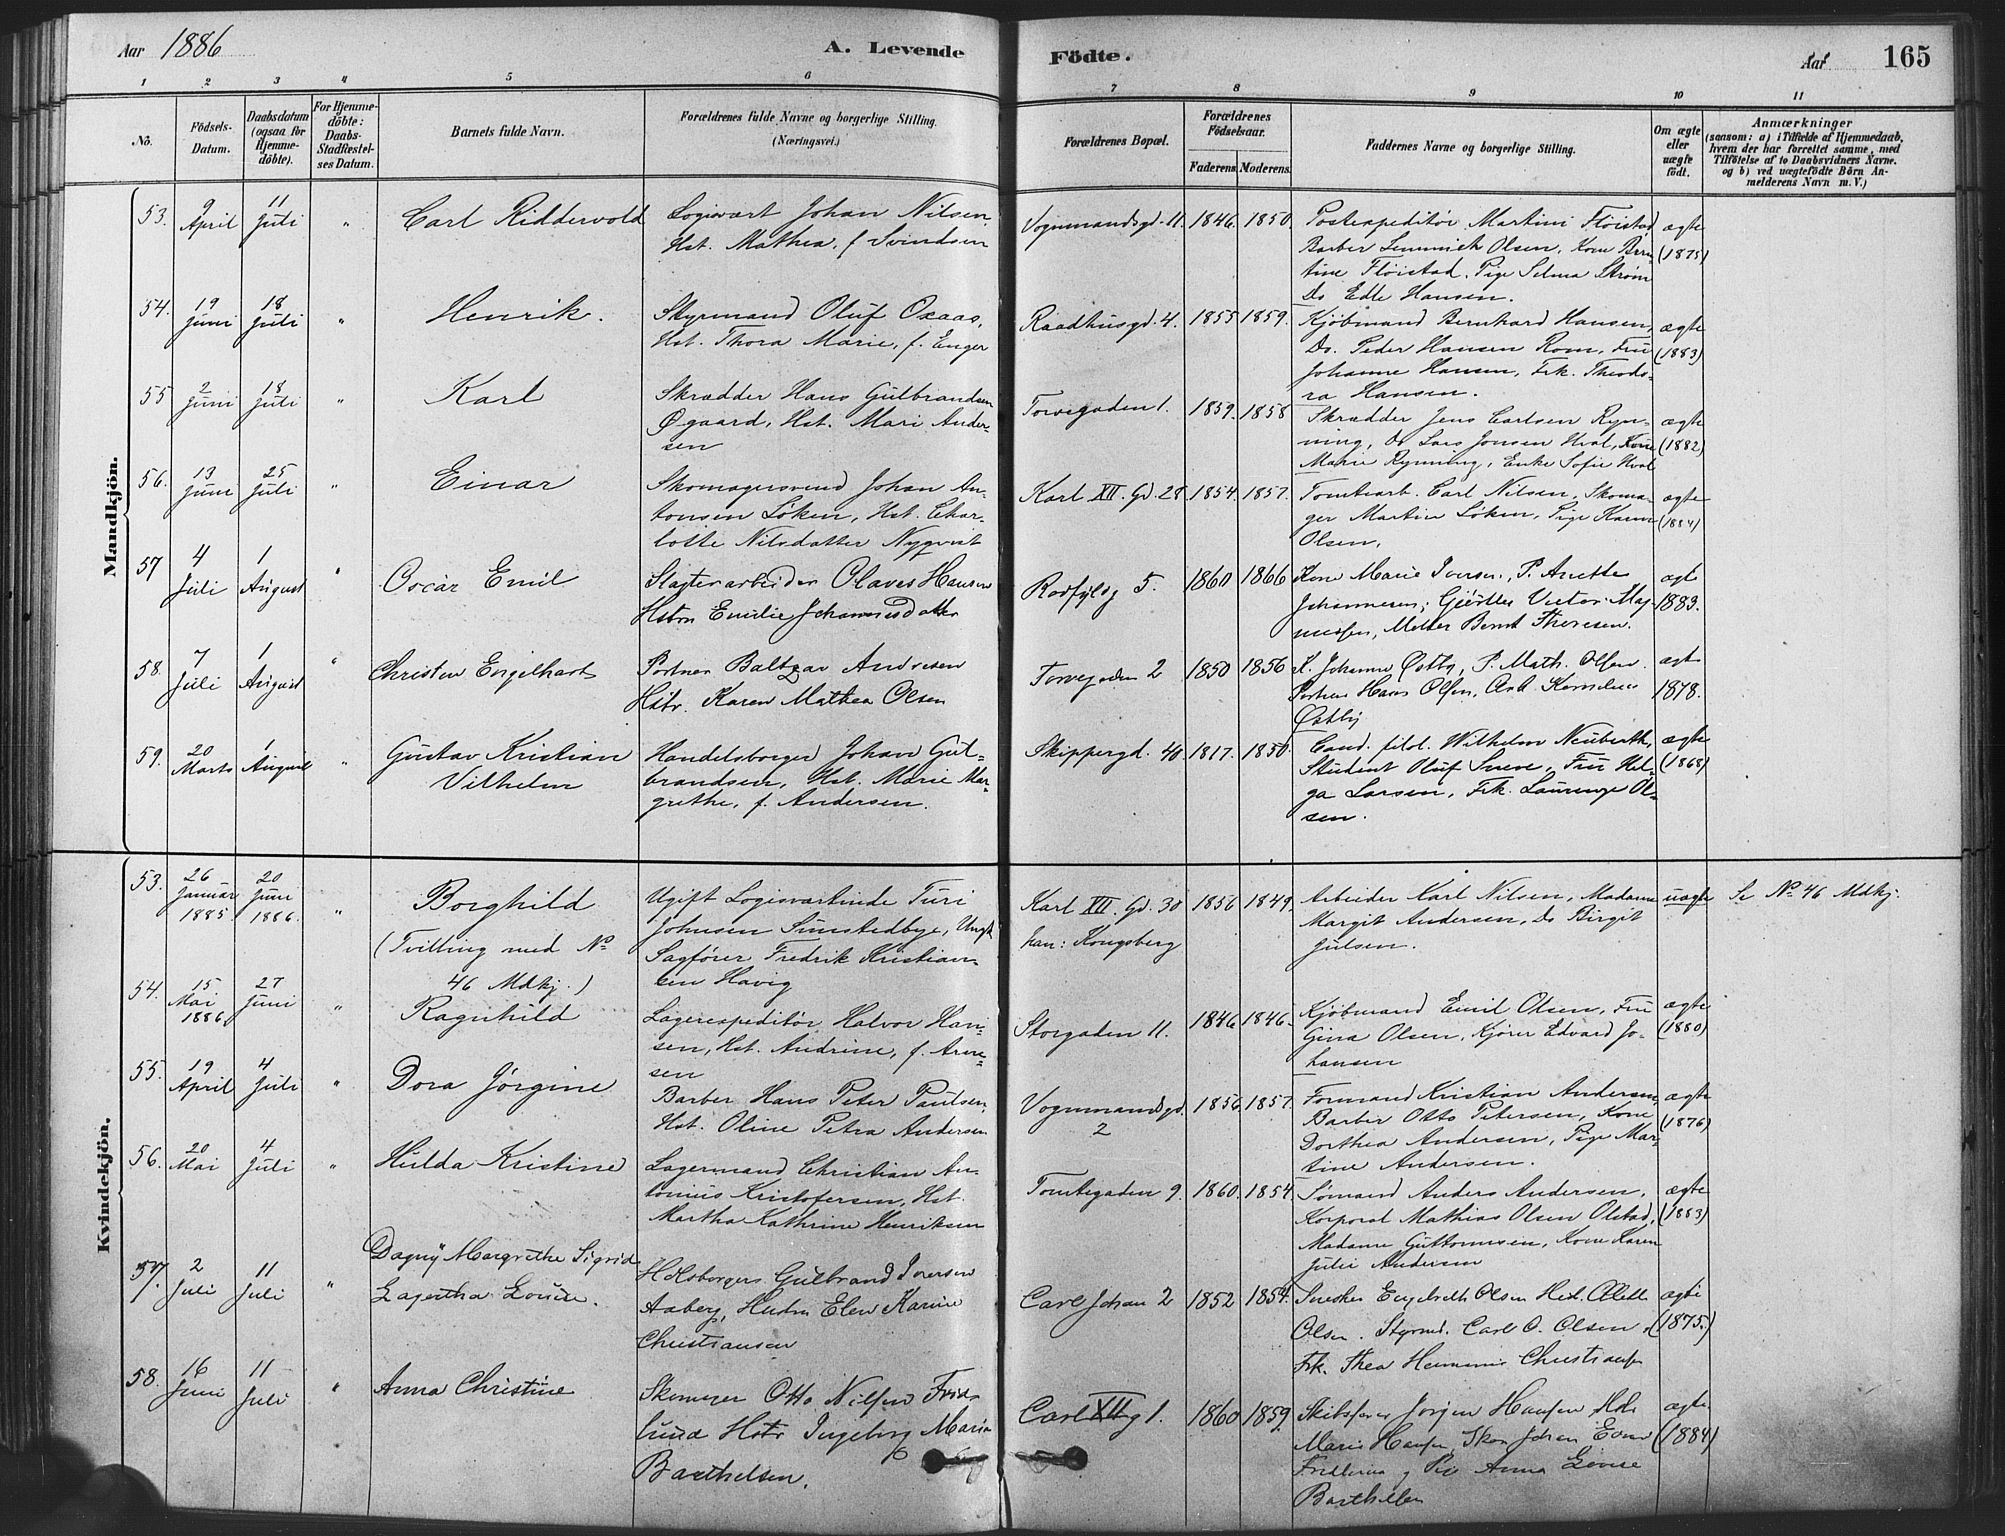 Aar 1886 A. Levende Födte. Aar 165
1 2 3 4 5 6 7 8 9 10 11
No.
Födsels-
Datum.
Daabsdatum
(ogsaa for
Hjemme-
döbte).
For Hjemme-
döbte:
Daabs-
Stadfæstel-
ses Datum.
Barnets fulde Navn.
Forældrenes fulde Navne og borgerlige Stilling.
(Næringsvei.)
Forældrenes Bopæl.
Forældrenes
Födselsaar.
Faderens. Moderens.
Faddernes Navne og borgerlige Stilling.
Om ægte
eller
uægte
födt.
Anmærkninger
(saasom: a) i Tilfælde af Hjemmedaab,
hvem der har forrettet samme, med
Tilföielse af to Daabsvidners Navne.
og b) ved uægtefödte Börn An-
melderens Navn m. V.)
Mandkjön.
53. 9 April 11 Juli " Carl Riddervold
Logivært Johan Nilsen,
Hst. Mathea, f. Svindsen
Vognmandsgd. 11. 1846. 1850.
Postexpeditör Martini Flöistad
Barber Lemmich Olsen, Kone Bern-
tine Flöistad, Pige Selma Ström
Do Edle Hansen.
ægte
(1875)
54. 19 Juni 18 Juli " Henrik.
Styrmand Oluf Oxaas,
Hst. Thora Marie, f. Enger
Raadhusgd. 4. 1855 1859.
Kjöbmand Bernhard Hansen,
Do. Peder Hansen Rom, Fru
Johanne Hansen, Frk. Theodo-
ra Hansen.
ægte
(1883)
55 2 Juni 18 Juli " Karl
Skrædder Hans Gulbrandsen
Øgaard, Hst. Mari Ander-
sen
Torvegaden 1. 1859. 1858
Skrædder Jens Carlsen Ryn-
ning, Do Lars Jonsen Hval, Kone
Marie Rynning, Enke Sofie Hval
ægte
(1882)
56. 13 Juni 25 Juli " Einar
Skomagersvend Johan An-
tonsen Löken, Hst. Char-
lotte Nilsdatter Nyqvist
Karl XII. Gd. 28 1854. 1857.
Tomtearb. Carl Nilsen, Skoma-
ger Martin Löken, Pige Karen
Olsen.
ægte
(1884)
57 4 Juli 1 August " Oscar Emil
Slagterarbeider Olaves Hansen
Hstru Emilie Johannesdatter
5. 1860 1866
Kone Marie Iversen, P. Anette
Johannesen, Gjörtler Victor Mag-
nussen, Möller Bernt Thoresen.
ægt
1883.
58. 7 Juli 1 August " Christen Engelhart
Portner Baltzar Andresen
Hstr. Karen Mathea Olsen
Torvegaden 2 1850 1856
K. Johanne Østby, P. Math. Olsen
Portner Hans Olsen, Arb. Kornelius
Østby
ægt
1878.
59. 20 Marts 1 August " Gustav Kristian
Vilhelm
Handelsborger Johan Gul-
brandsen, Hst. Marie Mar-
grethe, f. Andersen.
Skippergd. 40. 1817. 1850.
Cand. filol. Wilhelm Neuberth,
Student Oluf Sneve, Fru Hel-
ga Larsen, Frk. Laurenze Ol-
sen.
ægte
(1868)
Kvindekjön.
53. 26 Januar 1885. 20 Juni 1886. " Borghild
(Tvilling med No
46 Mdkj.)
Ugift Logisværtinde Turi
Johnsen Sunstedbye, Ungk.
Sagförer Fredrik Kristian-
sen Havig
Karl XII. Gd. 30
han: Kongsberg
1856 1849.
Arbeider Karl Nilsen, Madame
Margit Andersen, Do Birgit
Julsen.
uægte
Se No 46 Mdkj.
54. 15 Mai 1886. 27 Juni " Ragnhild
Lagerexpeditör Halvor Han-
sen, Hst. Andrine, f. Arne-
sen
Storgaden 11. 1846 1846.
Kjöbmand Emil Olsen, Fru
Gina Olsen, Kjörer Edvard Jo-
hansen
ægte
(1880)
55. 19 April 4 Juli " Dora Jörgine
Barber Hans Peter Paulsen,
Hst. Oline Petra Andersen
Vognmandsgd.
2
1856 1857.
Formand Kristian Andersen,
Barber Otto Petersen, Kone
Dorthea Andersen, Pige Mar-
tine Andersen.
ægte
(1876)
56. 20 Mai 4 Juli " Hulda Kristine
Lagermand Christian An-
tonius Kristofersen, Hst.
Martha Kathrine Henriksen
Tomtegaden 9. 1860. 1854.
Sömand Anders Andersen,
Korporal Mathias Olsen Olstad,
Madame Guttormsen, Kone Karen
Julie Andersen
ægte
(1883)
57. 2 Juli 11 Juli " Dagny Margrethe Sigrid
Lagertha Louise.
Hdlsborger Gulbrand Iversen
Aaberg, Hustru Elen Karine
Christiansen
Carl Johan 2 1852 1854.
Snedker Engebreth Olsen Hst. Alette
Olsen. Styrmd. Carl O. Olsen,
Frk. Thea Christiansen
ægte
(1875.)
58. 16 Juni 11 Juli " Anna Christine
Skomager Otto Nilsen Frid-
lund Hstr Ingeborg Marie
Barthelsen.
Carl XII g 1. 1860 1859.
Skibsförer Jorgen Hansen
Marie Hansen, Skom Johan
Anna Lovise
Barthelsen
ægte
(1884)